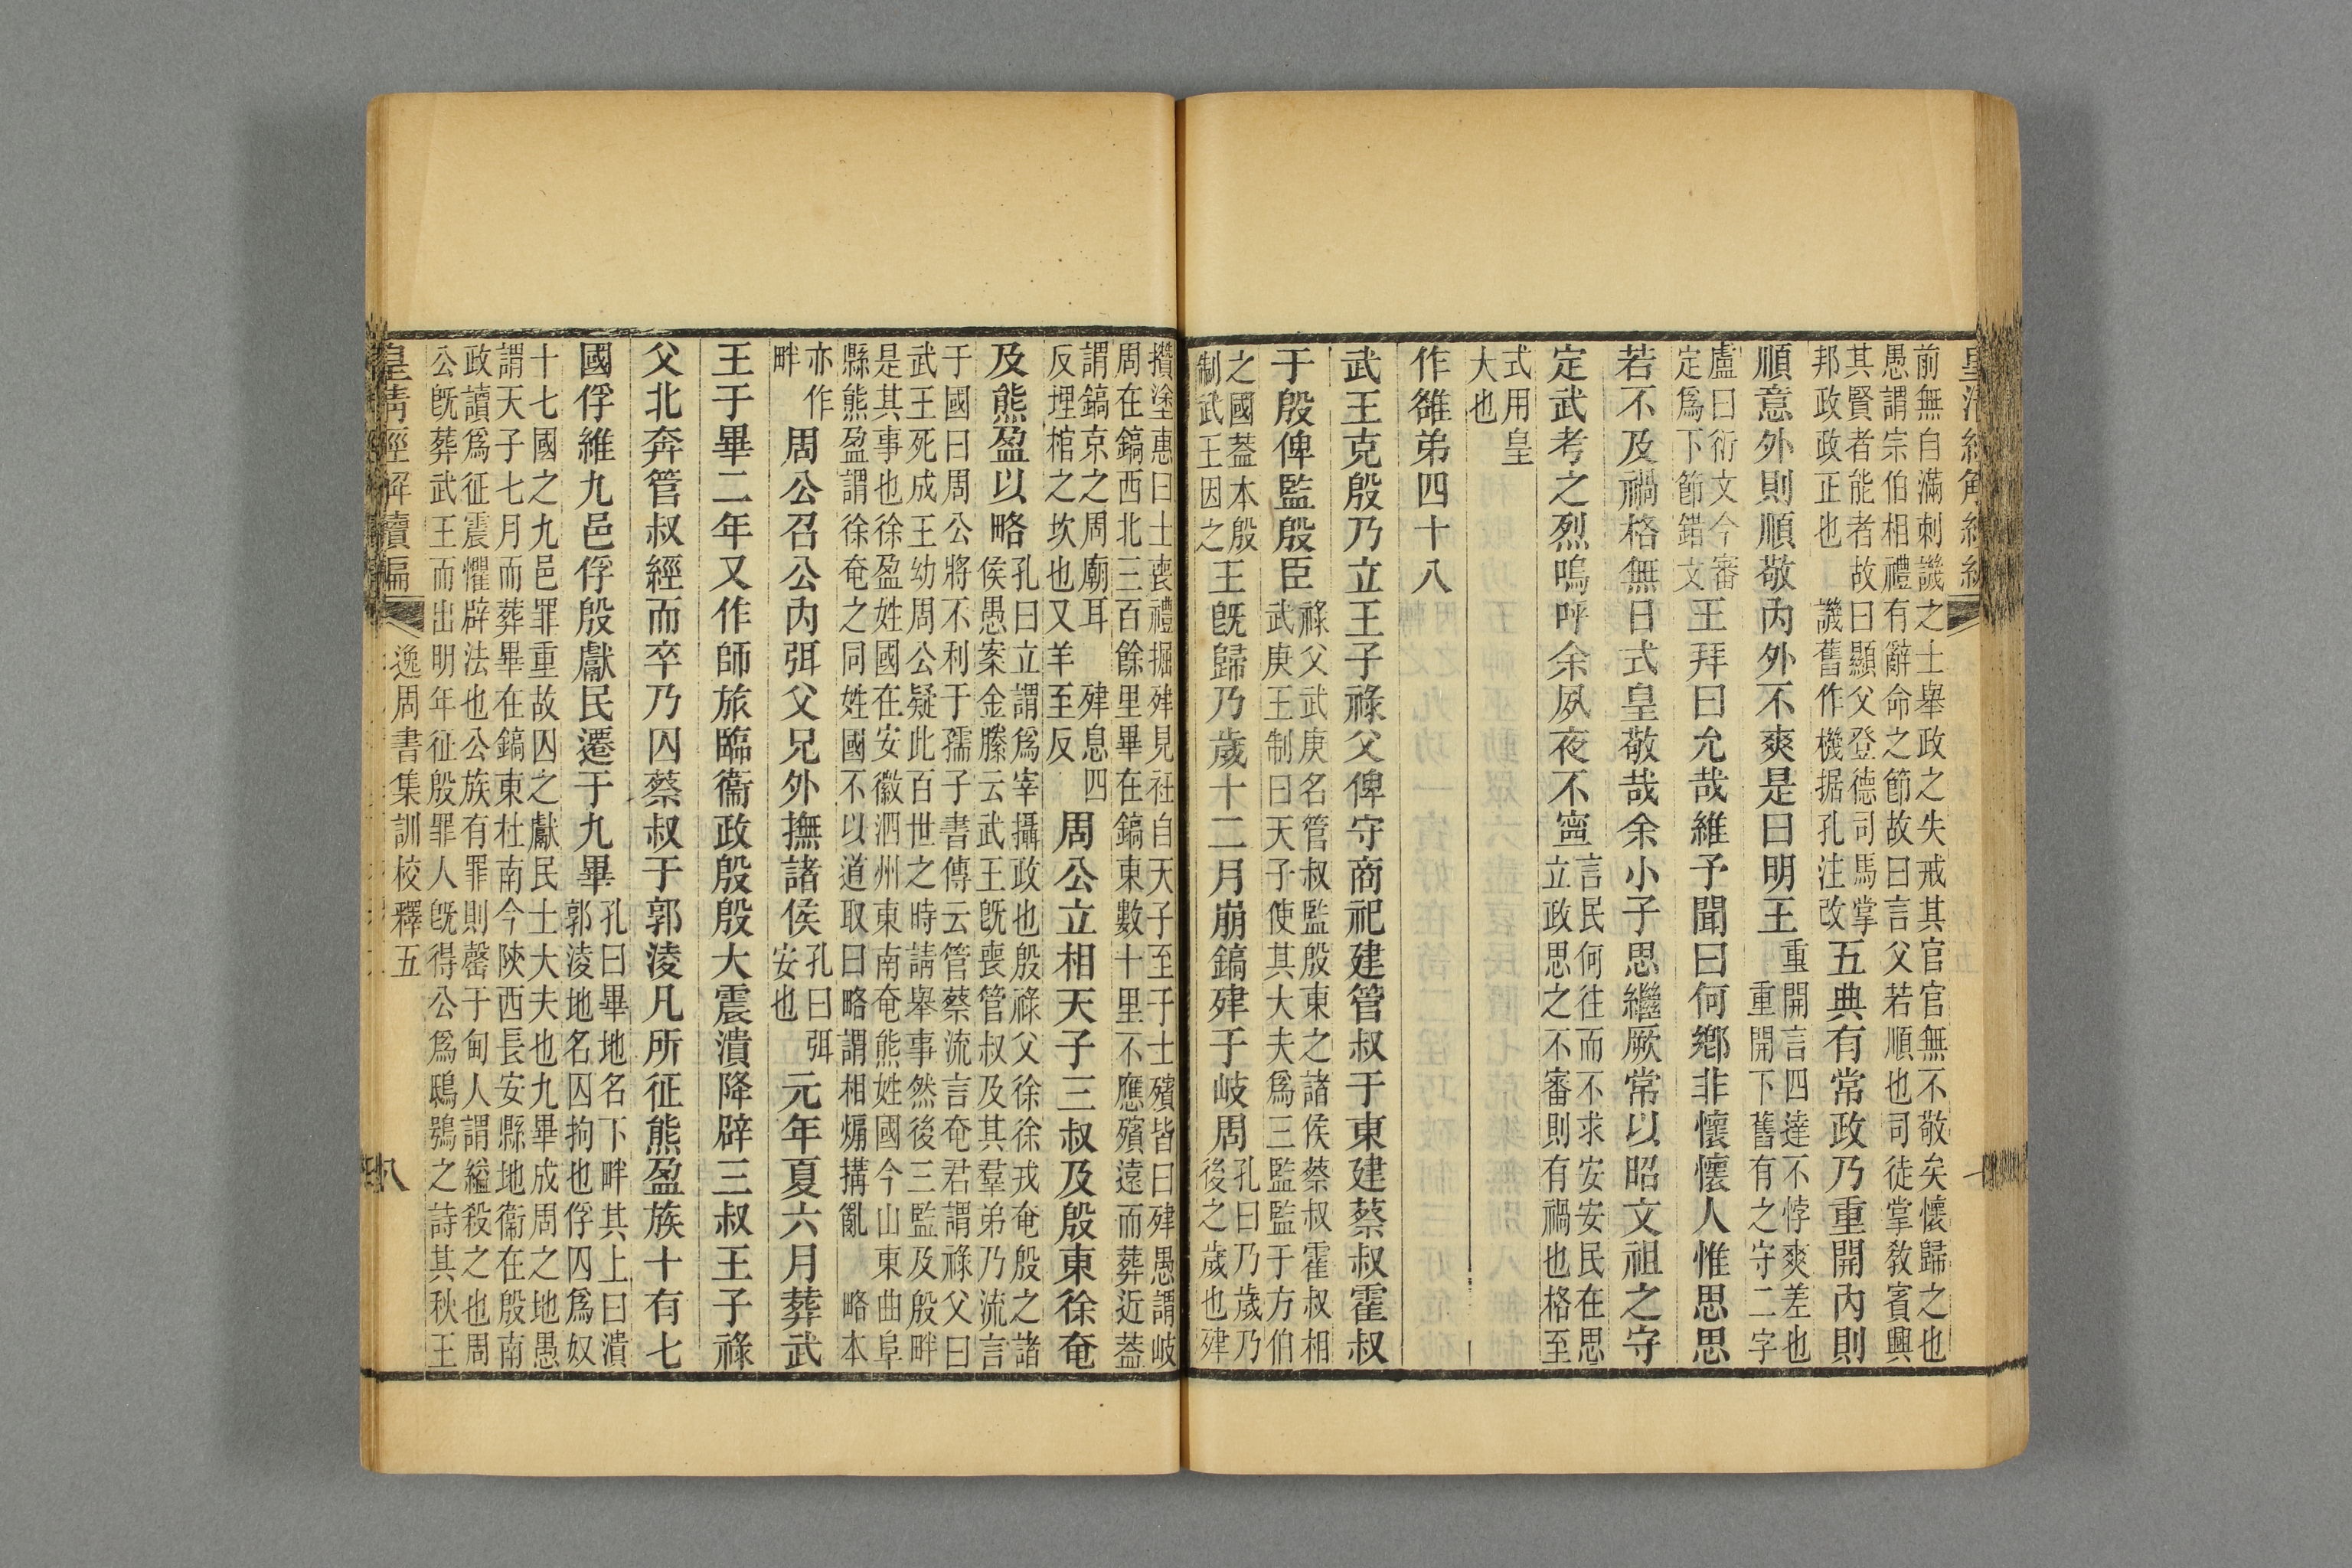 前無自滿刺譏之士舉政之失戒其官官無不敬矣懷歸之也
愚謂宗伯相禮有辭命之節故曰言父若順也司徒掌敎賓興
其賢者能者故曰顯父登德司馬掌
邦政政正也 譏舊作機据孔注改
五典有常政乃重開內則
順意外則順敬內外不爽是曰明王
重開言四達不悖爽差也
重開下舊有之守二字
盧曰衍文今審
定爲下節錯文
王拜曰允哉維予聞曰何鄉非懷懷人惟思思
若不及禍格無日式皇敬哉余小子思繼厥常以昭文祖之守
定武考之烈嗚呼余夙夜不寍
言民何往而不求安安民在思
立政思之不審則有禍也格至
式用皇
大也
作雒弟四十八
武王克殷乃立王子祿父俾守商祀建管叔于東建蔡叔霍叔
于殷俾監殷臣
祿父武庚名管叔監殷東之諸侯蔡叔霍叔相
武庚王制曰天子使其大夫爲三監監于方伯
之國葢本殷
制武王因之
王旣歸乃歲十二月崩鎬肂于岐周
孔曰乃歲乃
後之歲也肂
攢塗惠曰士喪禮掘肂見衽自天子至于士殯皆曰肂愚謂岐
周在鎬西北三百餘里畢在鎬東數十里不應殯遠而葬近葢
謂鎬京之周廟耳 肂息四
反埋棺之坎也又羊至反
周公立相天子三叔及殷東徐奄
及熊盈以略
孔曰立謂爲宰攝政也殷祿父徐徐戎奄殷之諸
侯愚案金縢云武王旣喪管叔及其羣弟乃流言
于國曰周公將不利于孺子書傳云管蔡流言奄君謂祿父曰
武王死成王幼周公疑此百世之時請舉事然後三監及殷畔
是其事也徐盈姓國在安徽泗州東南奄熊姓國今山東曲阜
縣熊盈謂徐奄之同姓國不以道取曰略謂相煽搆亂 略本
亦作
畔
周公召公內弭父兄外撫諸侯
孔曰弭
安也
元年夏六月葬武
王于畢二年又作師旅臨衞政殷殷大震潰降辟三叔王子祿
父北奔管叔經而卒乃囚蔡叔于郭淩凡所征熊盈族十有七
國俘維九邑俘殷獻民遷于九畢
孔曰畢地名下畔其上曰潰
郭淩地名囚拘也俘囚爲奴
十七國之九邑罪重故囚之獻民士大夫也九畢成周之地愚
謂天子七月而葬畢在鎬東杜南今陝西長安縣地衞在殷南
政讀爲征震懼辟法也公族有罪則罄于甸人謂縊殺之也周
公旣葬武王而出明年征殷罪人旣得公爲鴟鴞之詩其秋王
皇淸經解續編
逸周書集訓校釋五
八